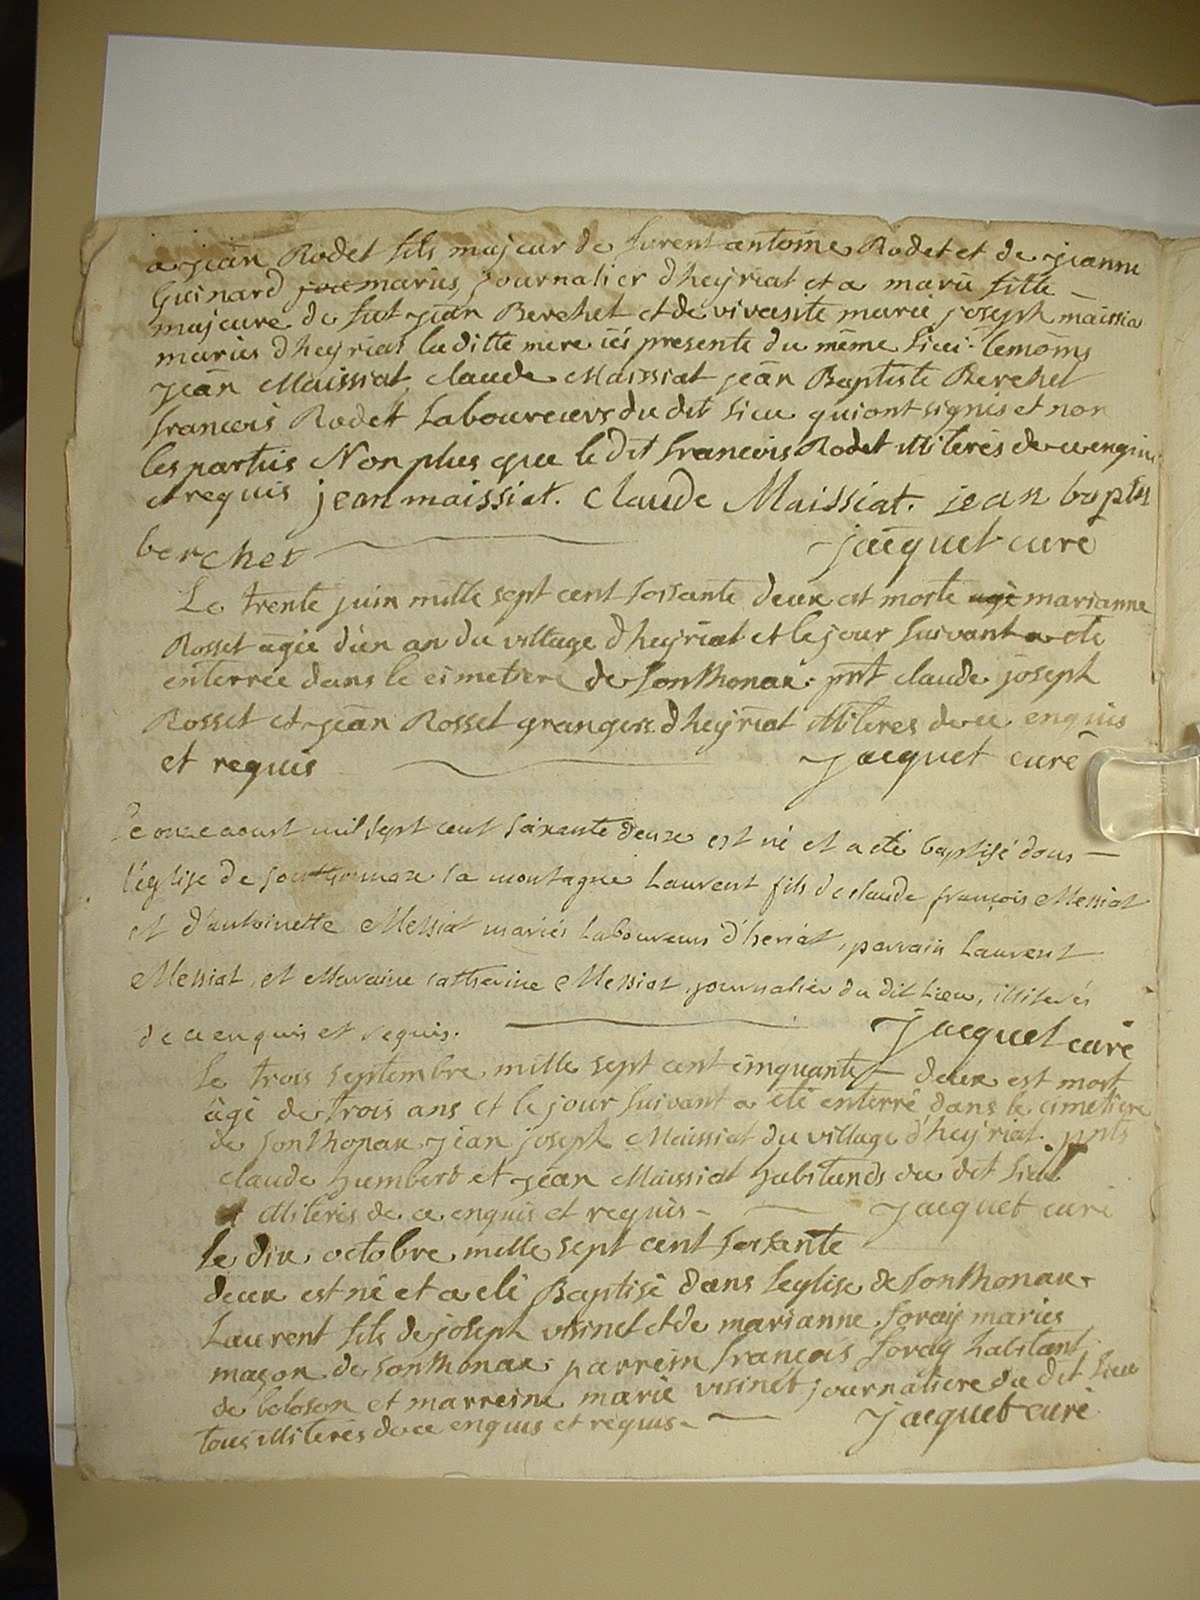 a jean Rodet fils majeur de furent antoine Rodet et de jeanne
Guinard mariés, journalier d'heyriat et a marie fille
majeure de fut jean Berchet et de vivante marie joseph maissia
mariés d'heyriat laditte mere ici presente du même lieu. temoins
jean Maissiat, claude Maissiat jean Baptiste Berchet
francois Rodet laboureurs du dit lieu qui ont signés et non
les parties Non plus que le dit francois Rodet illiterés de ce enquis
et requis jean maissiat. Claude Maissiat. jean baptis
berchet jacquet curé
Le trente juin mille sept cent soisante deux est morte agé marianne
Rosset agée d'un an du village d'heyriat et le jour suivant a eté
enterrée dans le cimetiere de sonthonax. pnt claude joseph
Rosset et jean Rosset grangers d'heyriat illiteres de ce enquis
et requis jacquet curé
Le onze aoust mil sept cent soixante deux est né et a eté baptisé dans
l'église de sonthonnax la montagne Laurent fils de claude françois Messiat
et d'antoinette Messiat mariés laboureurs d'heriat, parrain Laurent
Messiat, et Maraine catherine Messiat, journalier du dit lieu, illiterés
de ce enquis et requis. jacquet curé
Le trois septembre mille sept cent cinquante deux est mort
âgé de trois ans et le jour suivant a eté enterré dans le cimetiere
de sonthonax jean joseph Maissiat du village d'heyriat. pnts
claude humbert et jean Maissiat habitands du dit lieu
illiterés de ce enquis et requis jacquet curé
le dix octobre mille sept cent soisante
deux est né et a eté Baptisé dans leglise de sonthonax
Laurent fils de joseph visinet et de marianne foray mariés
maçon de sonthonax. parrein francois foray habitant
de boloson et marreine marie visinet journaliere du dit lieu
tous illiterés de ce enquis et requis jacquet curé